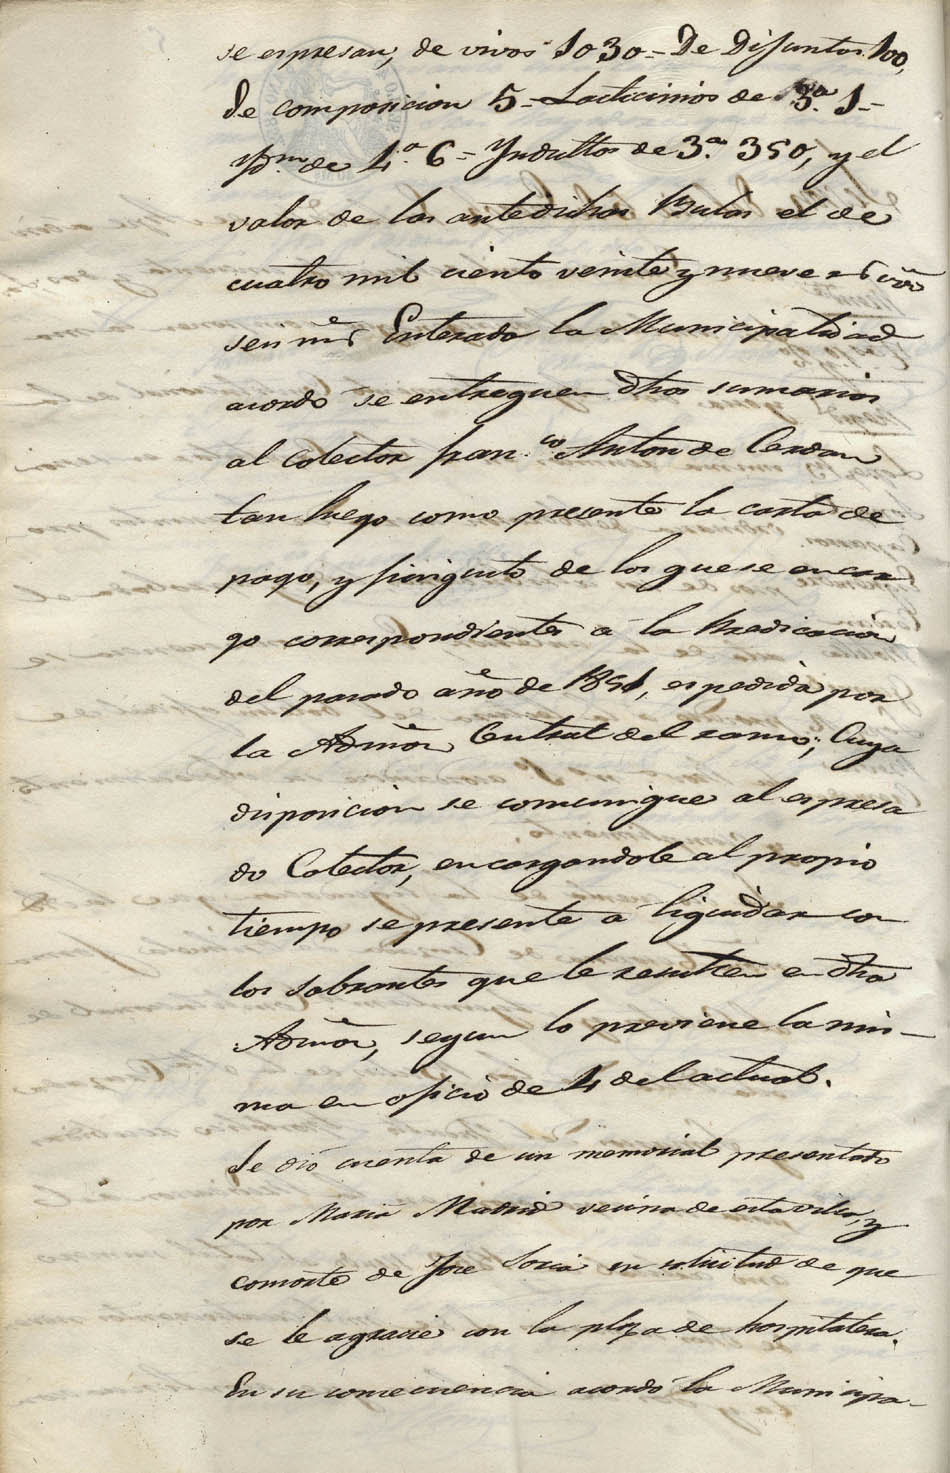 se espresan, de vivos 1030= De Difuntos 100,
de composicion 5= Lacticinios de 3.ª 1=
Yd.m de 4.ª 6= Yndultos de 3.ª 350, y el
valor de las antedichas Bulas el de
cuatro mil ciento veinte y nueve
Enterada la Municipalidad
acordó se entreguen dhos sumarios
al Colector Fran.co Anton de Cerdan
tan luego como presente la carta de
pago, y finiquito de los que se encar
gó correspondientes a la Predicacion
del pasado año de 1851, espedida por
la Admon Central del ramo; Cuya
disposicion se comunique al espresa
do Colector, encargandole al propio
tiempo se presente a liquidar con
los sobrantes que le resulten en dha
Admon, segun lo previene la mis-
ma en oficio de 4 del actual.
Se dió cuenta de un memorial presentado
por Maria Madrid vecina de esta villa, y
consorte de Jose Soria en solicitud de que
se le agracie con la plaza de hospitalera.
En su consecuencia acordó la Municipa-